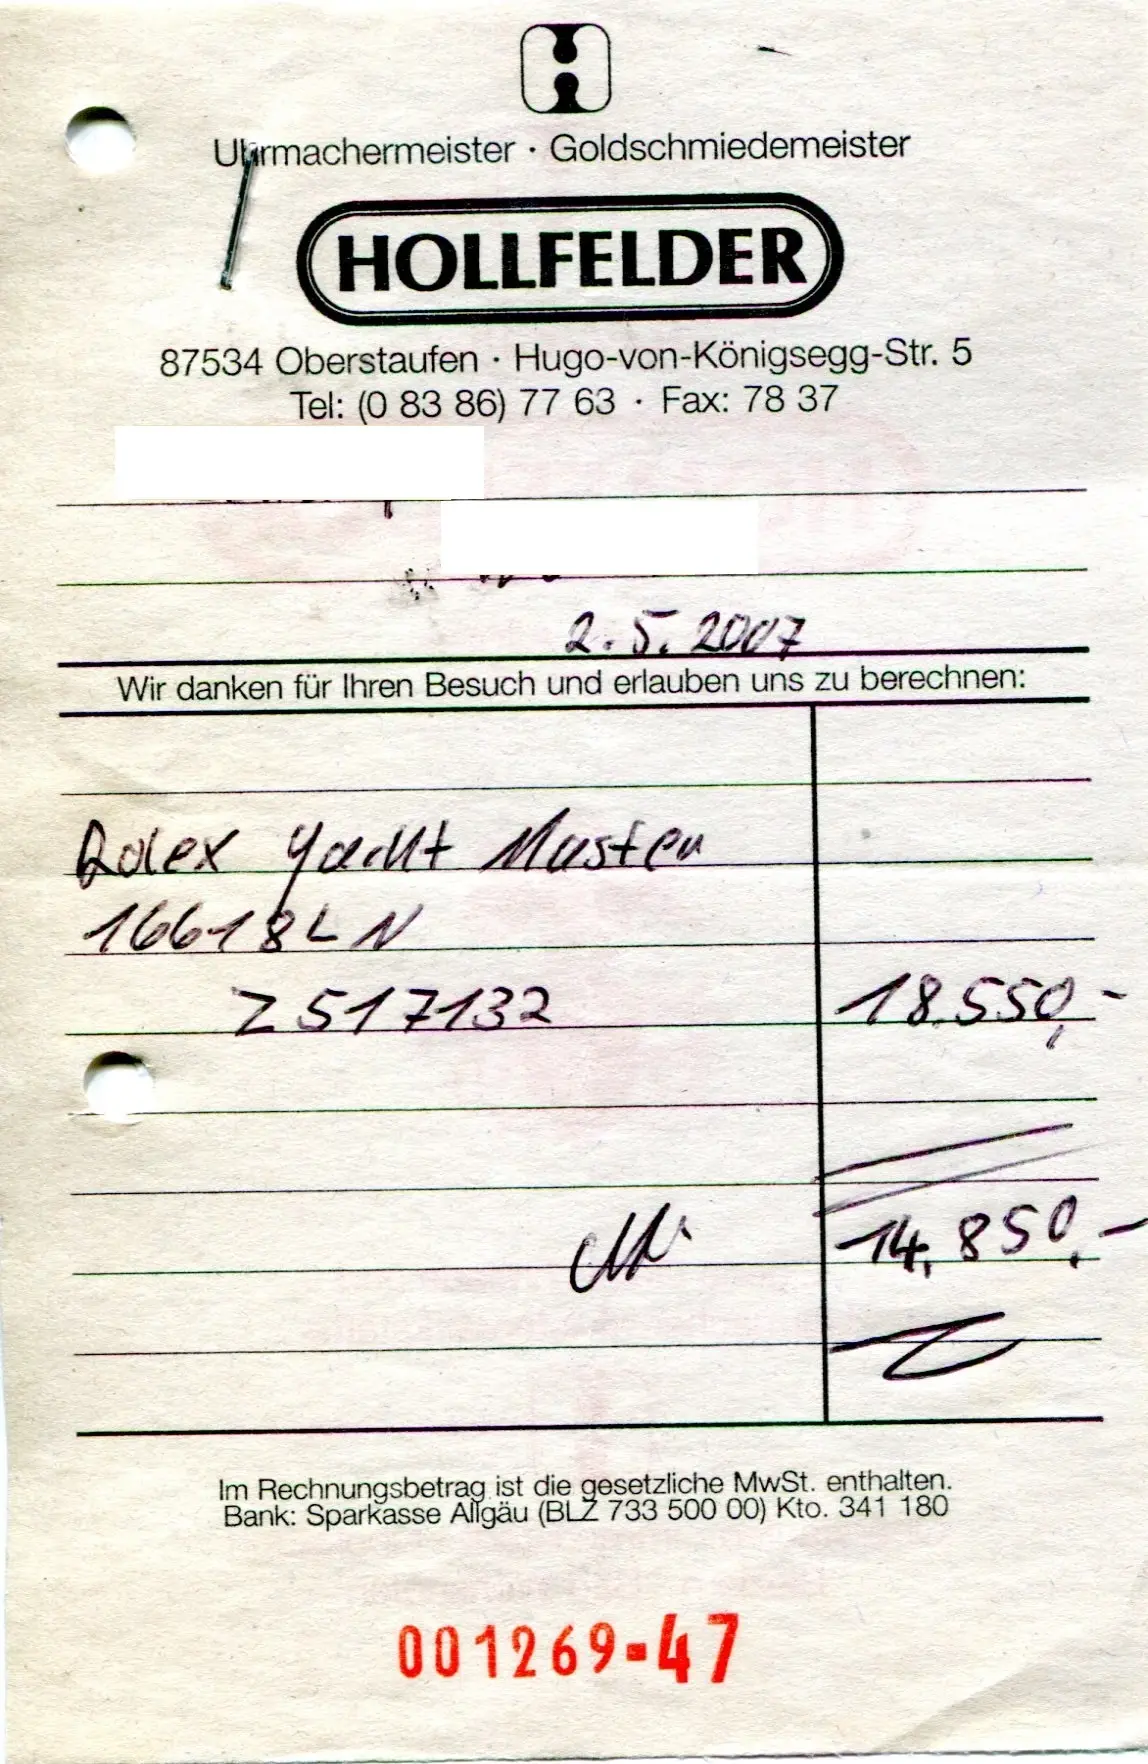 Uhrmachermeister · Goldschmiedemeister
HOLLFELDER
87534 Oberstaufen · Hugo-von-Königsegg-Str. 5
Tel: (0 83 86) 77 63 · Fax: 78 37
2.5.2007
Wir danken für Ihren Besuch und erlauben uns zu berechnen:
Rolex Yacht Master
16618LN
Z517132 18.550,-
14.850,-
Im Rechnungsbetrag ist die gesetzliche MwSt. enthalten.
Bank: Sparkasse Allgäu (BLZ 733 500 00) Kto. 341 180
001269-47